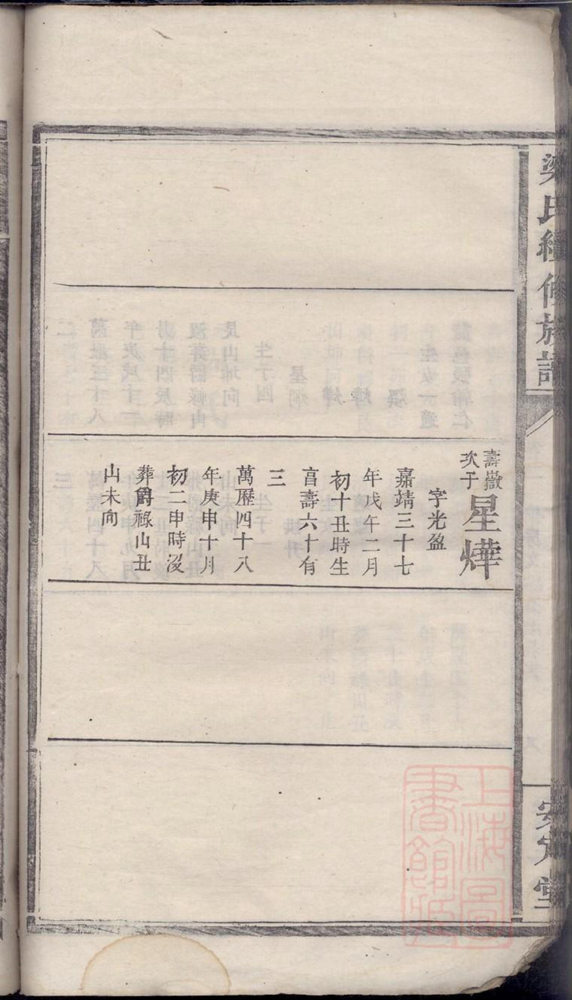 氏續修族譜
壽嶽
次子
星燁
字光盈
嘉靖三十七
年戊午二月
初十丑時生
享壽六十有
三
萬歷四十八
年庚申十月
初二申時沒
葬爵祿山丑
山未向
堂
上海圖
書館藏